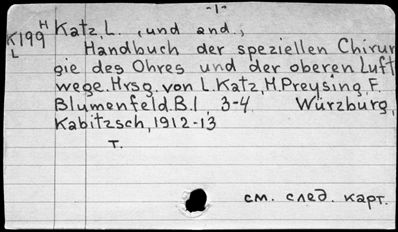 -1-
K199 H L
Katz, L. , und and.,
Handbuch der speziellen Chirur
gie des Ohres und der oberen Luft
wege. Hrsg. von L. Katz, H. Preysing, F.
Blumenfeld. B.1, 3-4. Würzburg,
Kabitzsch, 1912-13
т.
см. след. карт.